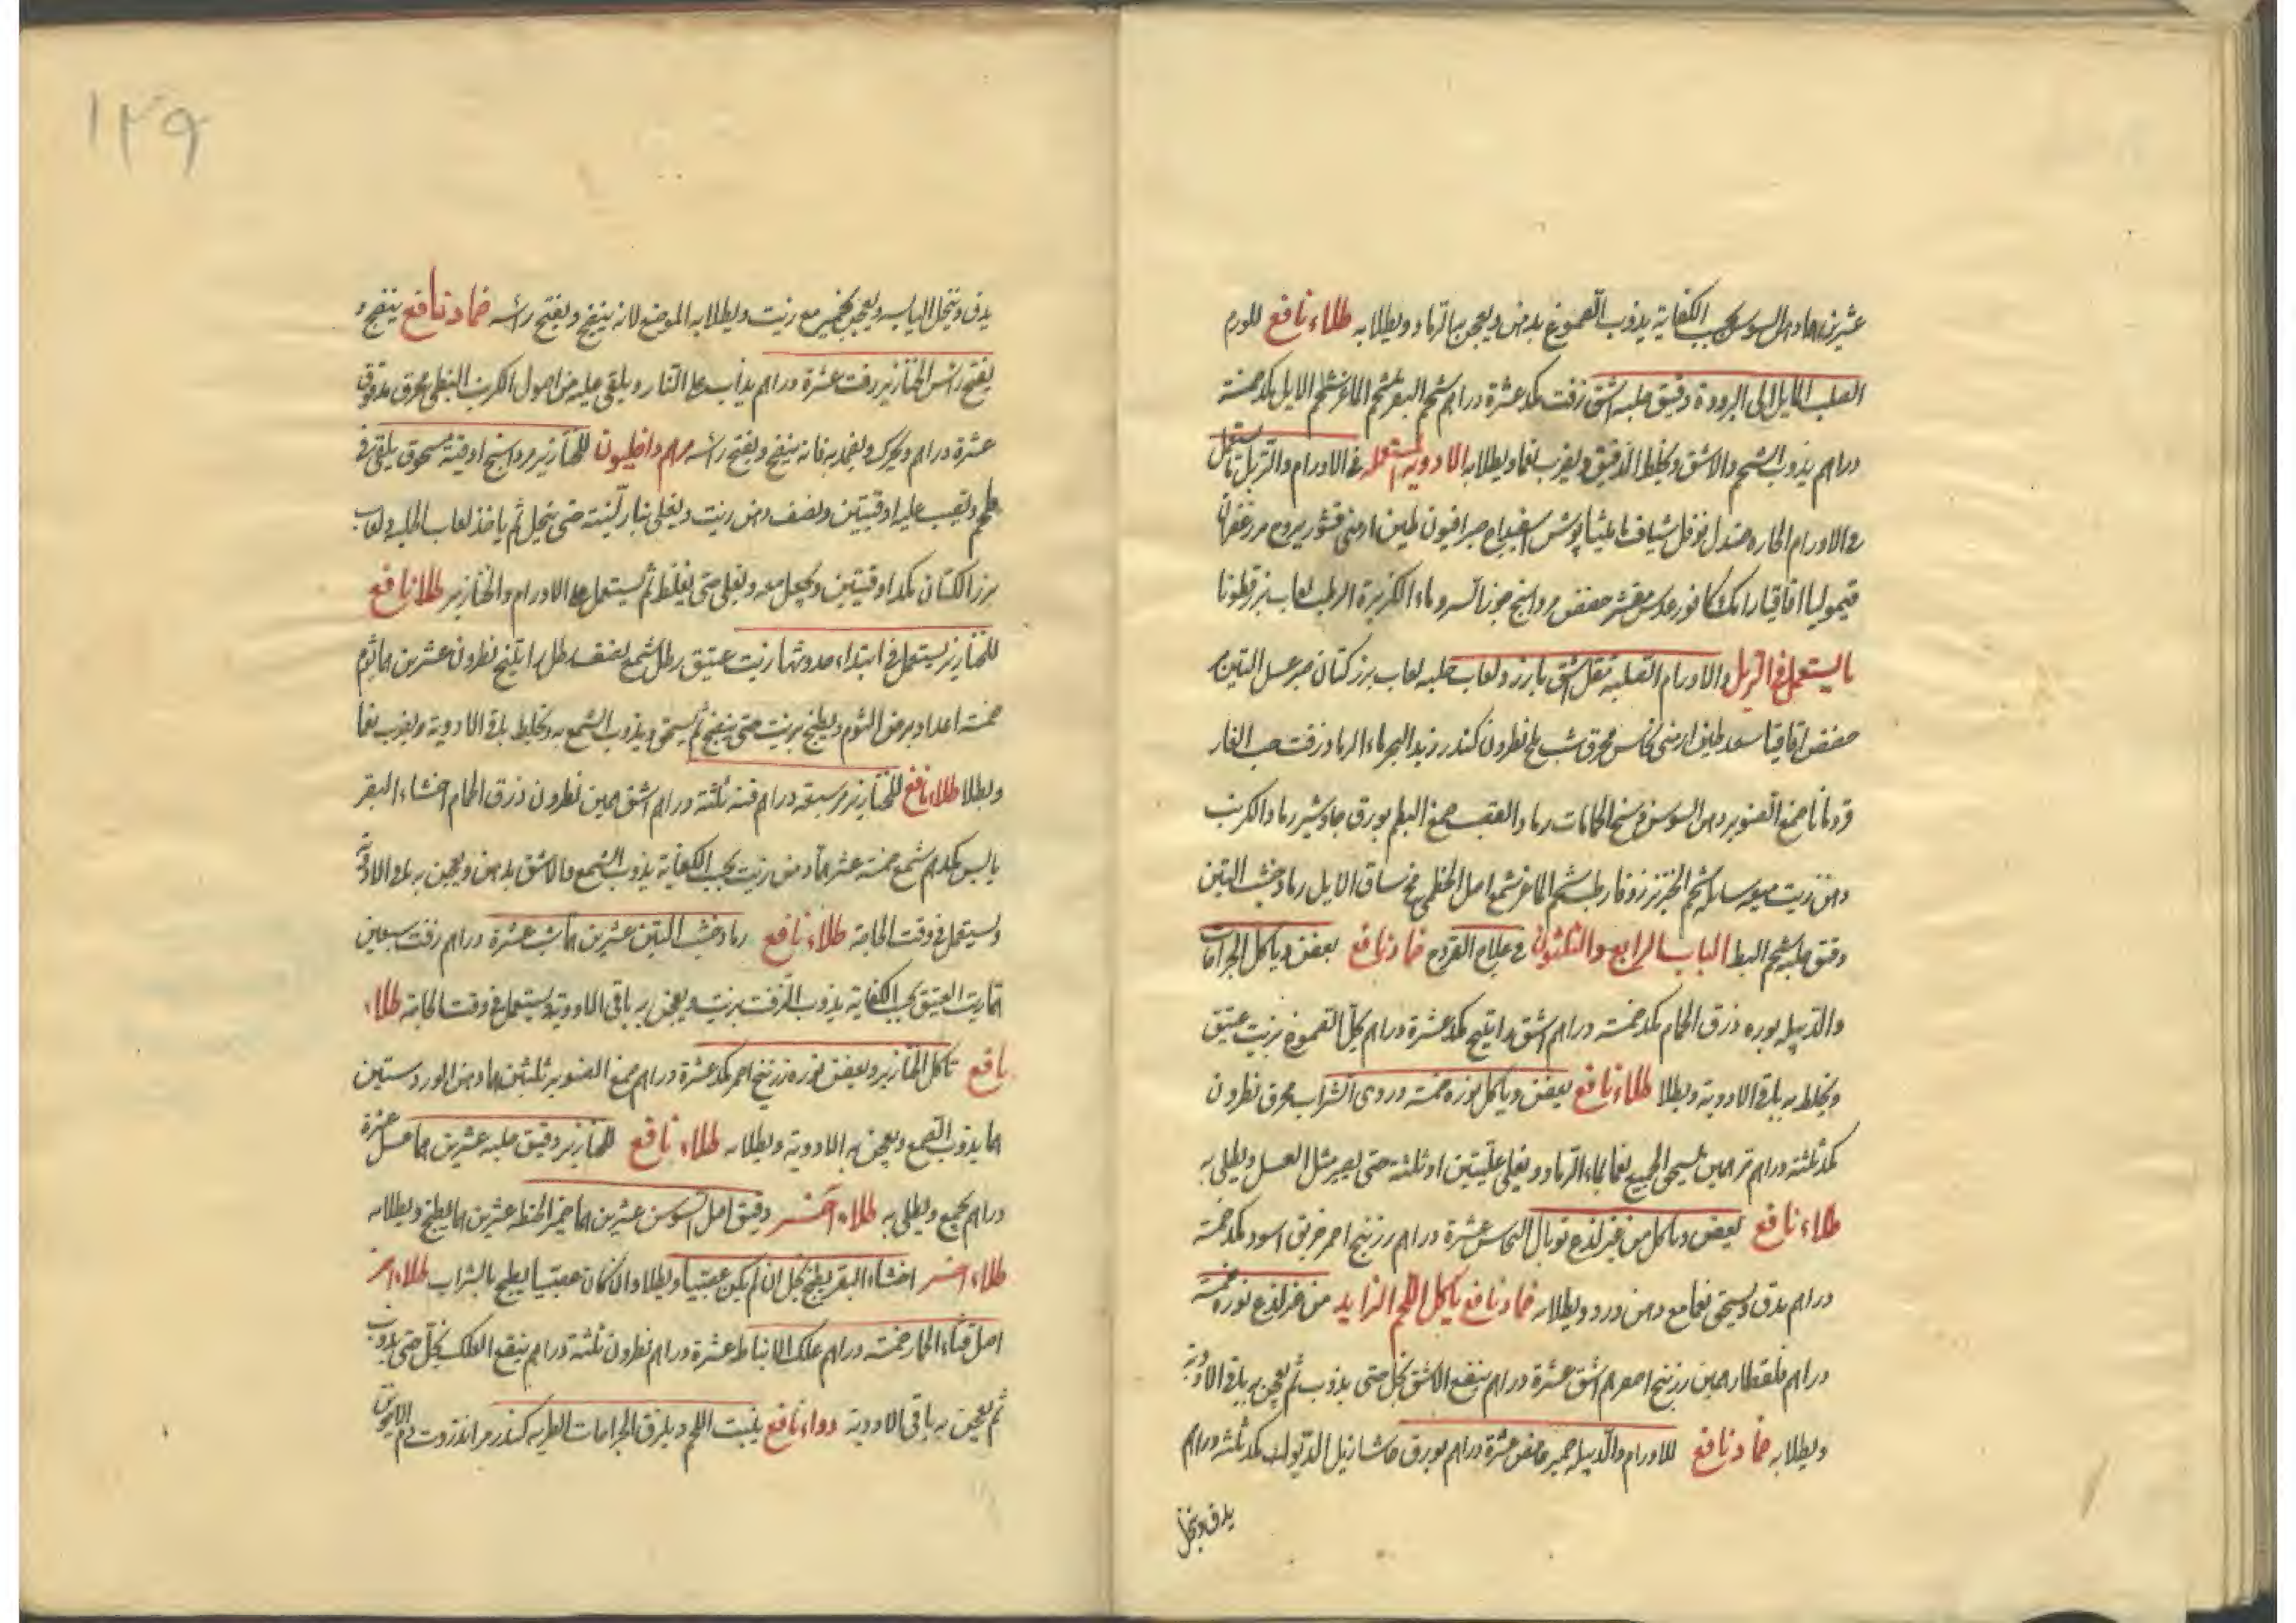 عشرين هما دهن السوسن بحسب الكفاية يذوب الصموغ بدهن ويعجن بالرماد ويطلا به طلاء نافع للورم
الصلب المايل الى البرودة دقيق حلبه اشق زفت مكد عشرة دراهم شحم البقر شحم الماعز شحم الايل مكد خمسة
دراهم يذوب الشحم والاشق ويخلط الدقيق ويضرب نعما ويطلا به الادوية المستعمله في الاورام والتربل تستعمل
في الاورام الحاره صندل فوفل شياف ماميثا بوش اسفيداج صبر افيون طين ارمنى قشور يبروح زعفران
قيموليا اقاقيا رامك كافور عدس مقشر حضض مرداسنج جوز السرو ماء الكزبرة الرطبه لعاب بزرقطونا
ما يستعمل في التربل والاورام الصلبه مقل اشق بارزد ولعاب حلبه لعاب بزر كتان صبر عسل التين
حضض اقاقيا سعد طين ارمنى نحاس محرق شب ملح نطرون كندر زبد البحر ماء الرماد زفت حب الغار
قردمانا صمغ الصنوبر دهن السوسن وسخ الحمامات رماد العقب صمغ البطم بورق جاوشير رماد الكرنب
دهن زيت ميعه سايله شحم الخنزير زوفا رطب شحم الماعز شمع اصل الخطمى مخ ساق الايل رماد خشب التين
دقيق حلبه شحم البط الباب الرابع والثلثون في علاج القروح ضماد نافع يعفن وياكل الجراحات
والدبيله بوره ذرق الحمام مكد خمسة دراهم اشق راتينج مكد عشرة دراهم يحل الصموغ بزيت عتيق
ويخلط به باقى الادوية ويطلا طلاء نافع يعفن وياكل نوره خمسة دردى الشراب محرق نطرون
مكد ثلثة دراهم يسحق الجميع نعما بماء الرماد ويغلى غليتين او ثلثة حتى يصير مثل العسل ويطلى به
طلاء نافع يعفن وياكل من غير لذع توبال النحاس عشرة دراهم زرنيخ احمر خربق اسود مكد خمسة
دراهم يدق ويسحق نعما مع دهن ورد ويطلا به ضماد نافع ياكل اللحم الزايد من غير لذع نوره خمسة
دراهم قلقطار زرنيخ اصفر اشق عشرة دراهم ينقع الاشق بخل حتى يذوب ثم يعجن به باقى الادوية
ويطلا به ضماد نافع للاورام والدبيله خمير حامض عشرة دراهم بورق حاشا زبل الديوك مكد ثلثة دراهم
يدق وينخل
١٢٩
يدق وينخل اليابسه ويعجن بخمير مع زيت ويطلا به الموضع لانه ينضج ويفتح راسه ضماد نافع ينضج و
يفتح راس الخنازير زفت عشرة دراهم يذاب على النار ويلقى عليه من اصول الكرنب النبطى محرق مدقوق
عشرة دراهم ويحرك ويضمد به فانه ينضج ويفتح راسه مرهم داخليون للخنازير مرداسنج اوقية مسحوق يلقى في
ويصب عليه اوقيتين ونصف دهن زيت ويغلى بنار لينة حتى ينحل ثم ياخذ لعاب الحلبه ولعاب
بزر الكتان مكد اوقيتين ويجعل معه ويغلى حتى يغلظ ثم يستعمل على الاورام والخنازير طلا نافع
للخنازير يستعمل في ابتداء حدوثها زيت عتيق رطل شمع نصف رطل راتينج نطرون عشرين هما ثوم
خمسة اعداد يرض الثوم ويطبخ بزيت حتى ينضج ثم يسحق ويذوب الشمع به ويخلط باقى الادوية ويضرب نعما
ويطلا طلاء نافع للخنازير مر سبعة دراهم قنه ثلثة دراهم اشق نطرون ذرق الحمام اخثاء البقر
يابس مكد شمع خمسة عشر هما دهن زيت بحسب الكفاية يذوب الشمع والاشق بدهن ويعجن به باقى الادوية
ويستعمل في وقت الحاجة طلاء نافع رماد خشب التين عشرين هما شب عشرة دراهم زفت سبعين
هما زيت العتيق بحسب الكفاية يذوب الزفت بزيت ويعجن به باقى الادوية ويستعمل في وقت الحاجة طلاء
نافع تاكل الخنازير ويعفن نوره زرنيخ احمر مكد عشرة دراهم صمغ الصنوبر ثلثين هما دهن الورد ستين
هما يذوب الصمغ ويعجن به الادوية ويطلا به طلاء نافع للخنازير دقيق حلبه عشرين هما عسل عشرة
دراهم يجمع ويطلى به طلاء آخر دقيق اصل السوسن عشرين هما خمير الحنطه عشرين هما يطبخ ويطلا به
طلاء اخر اخثاء البقر يطبخ بخل ان لم يكن عصبيا ويطلا وان كان عصبيا يطبخ بالشراب طلاء اخر
اصل قثاء الحمار خمسة دراهم علك الانباط عشرة دراهم نطرون ثلثة دراهم ينقع العلك بخل حتى يذوب
ثم يعجن به باقى الادوية دواء نافع ينبت اللحم ويلزق الجراحات الطريه كندر مر انزروت دم الاخوين